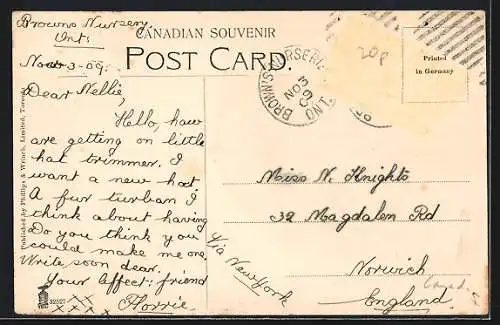 Browns Nursery
Ont:
Nov 3-09.
CANADIAN SOUVENIR
POST CARD.
BROWN'S NURSERIE
NO 3
09
ONT.
20p
Printed
in Germany
Dear Nellie,
Hello, how
are getting on little
hat trimmer. I
want a new hat
A fur turban I
think about having
Do you think you
could make me one.
Write soon dear.
Your affect: friend
Florrie.
xxx
Published by Phillips & Wrinch, Limited, Toronto
Miss N. Knights
32 Magdalen Rd
Norwich
England
Via New York
Canad.